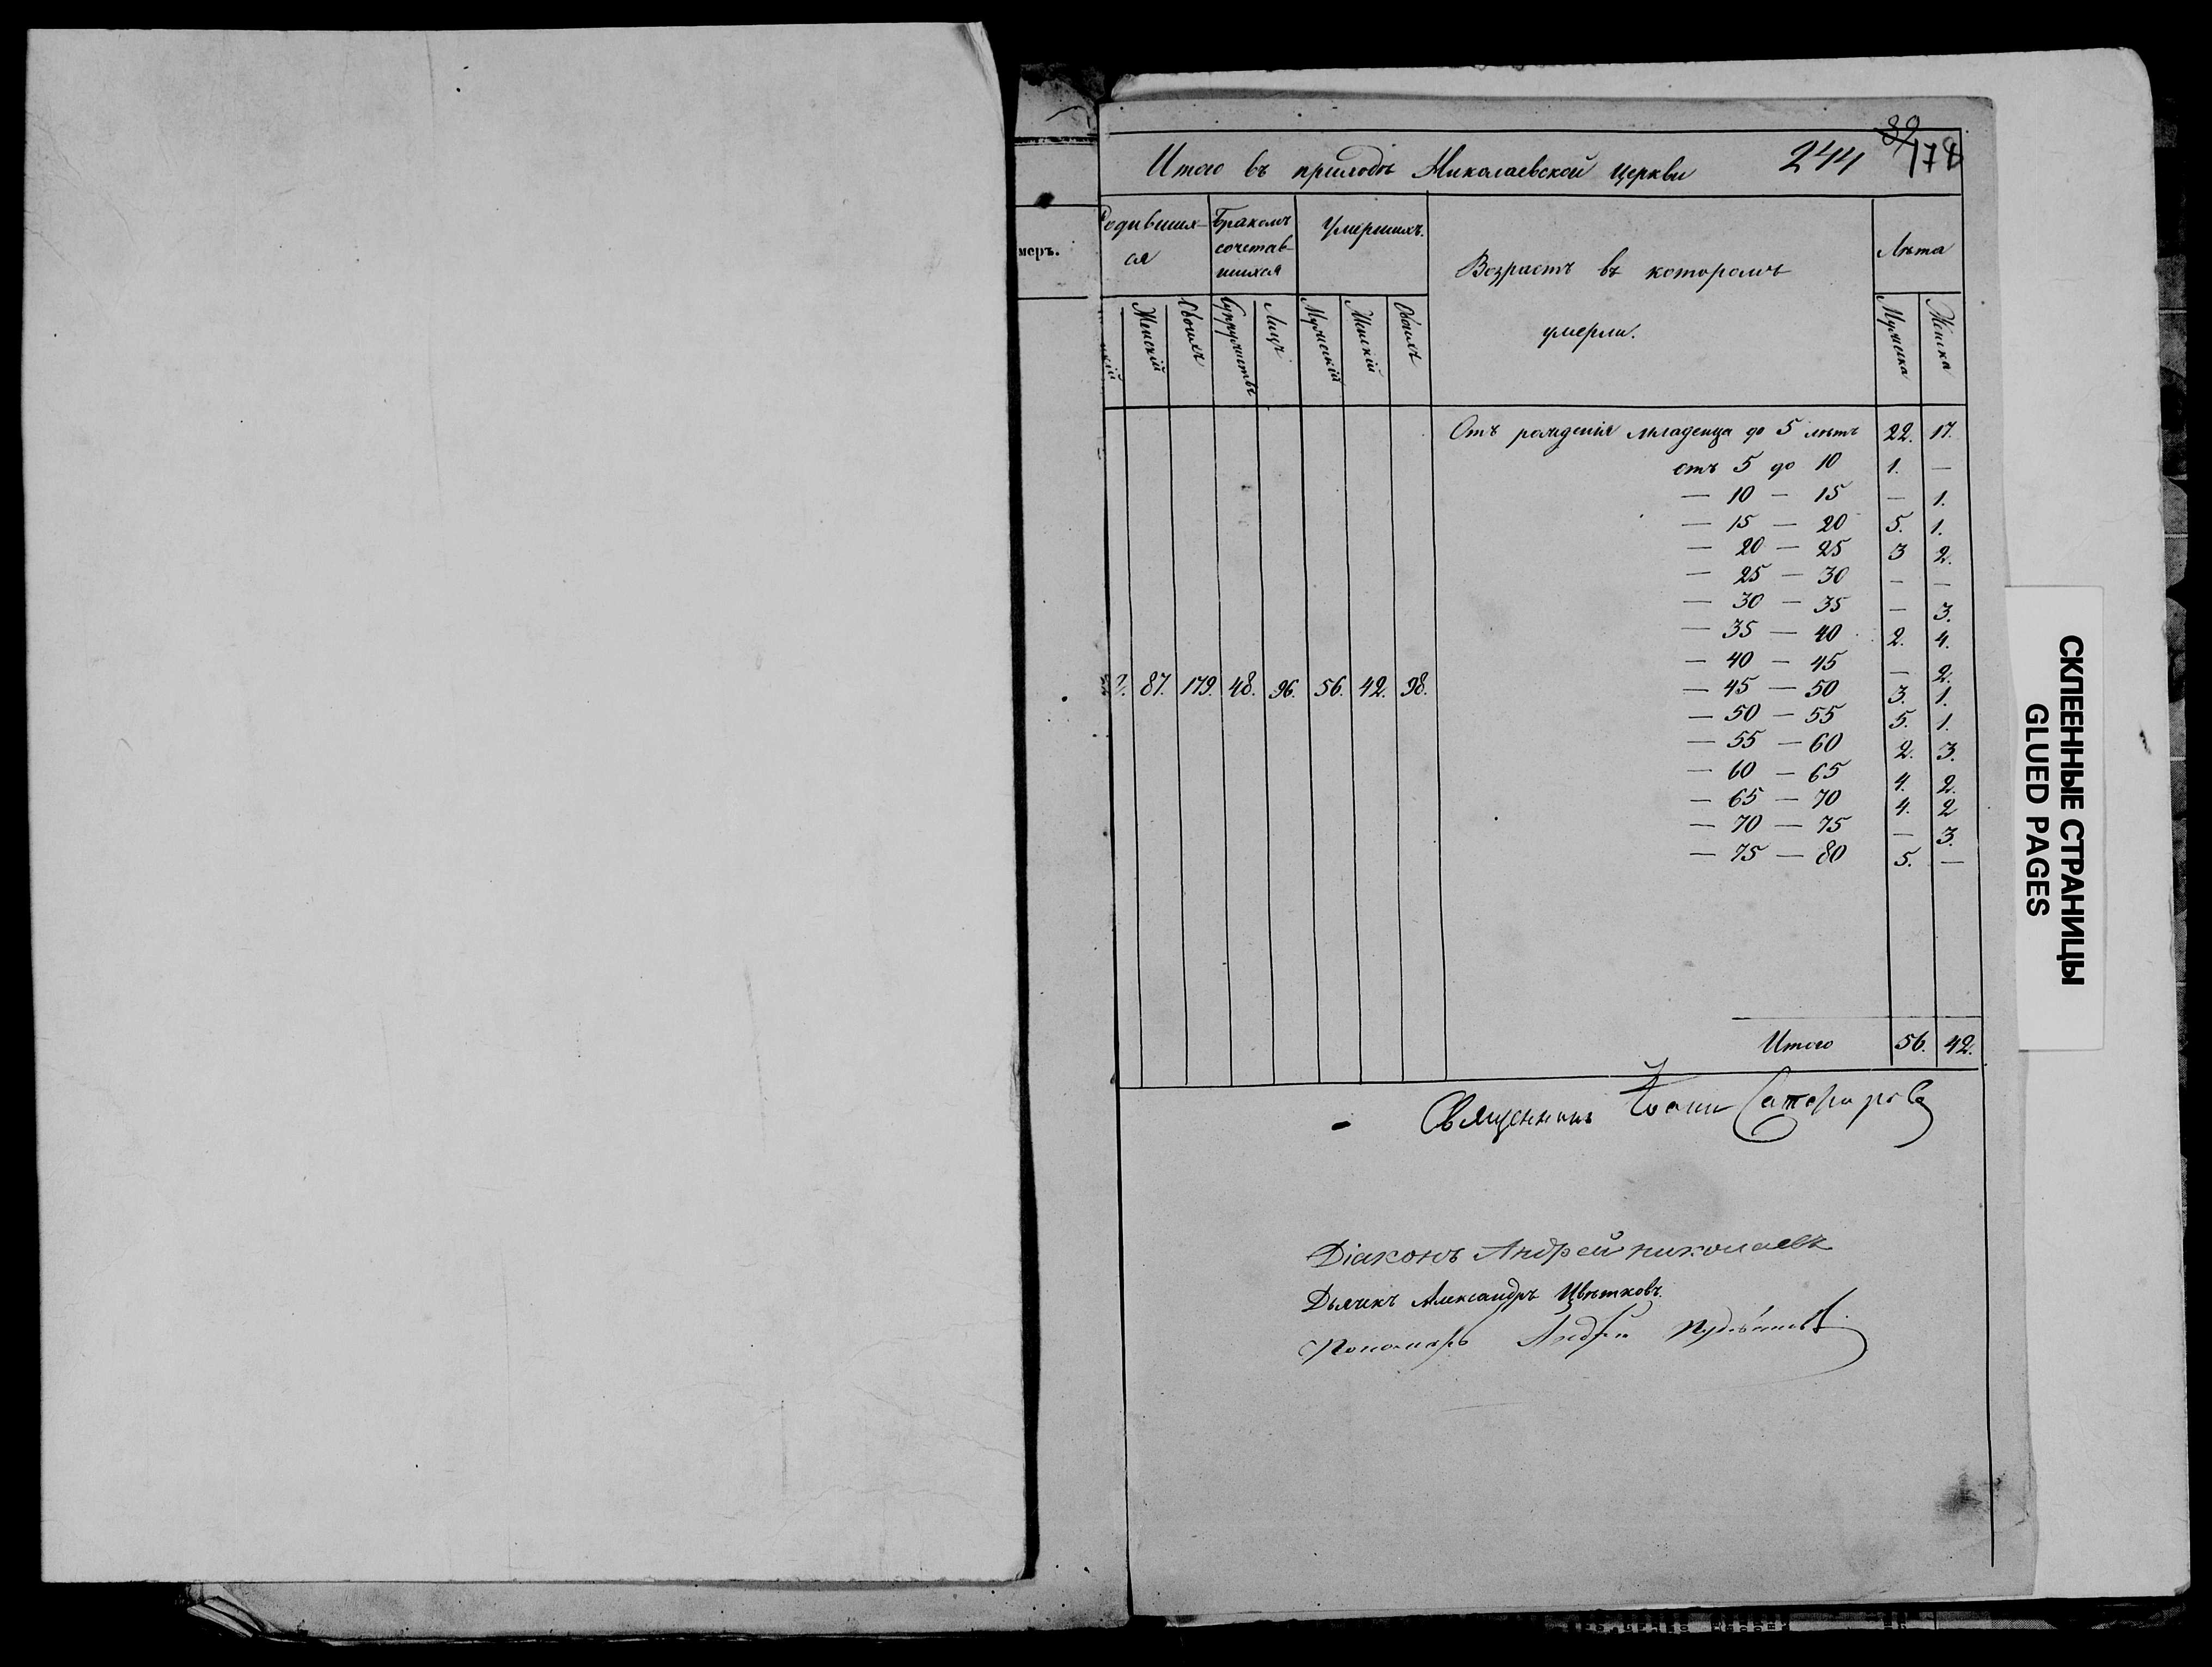 Итого въ приходѣ Николаевской церкви 244 39 174
меръ.
Родивших-ся Бракомъ сочетав-шихся Умершихъ. Возрастъ въ которомъ умерли. Лѣта
Женскій Обоихъ Супружествъ Лицъ Мужескій Женскій Обоихъ Мужеска Женска
Отъ рожденія младенца до 5 лѣтъ 22. 17.
отъ 5 до 10 1. —
— 10 — 15 — 1.
— 15 — 20 5. 1.
— 20 — 25 3 2.
— 25 — 30 — —
— 30 — 35 — 3.
— 35 — 40 2. 4.
— 40 — 45 — 2.
87. 179. 48. 96. 56. 42. 98.
— 45 — 50 3. 1.
— 50 — 55 5. 1.
— 55 — 60 2. 3.
— 60 — 65 4. 2.
— 65 — 70 4. 2
— 70 — 75 — 3.
— 75 — 80 5. —
Итого 56. 42.
Священникъ Іоаннъ
Діаконъ Андрей Николаевъ
Дьячекъ Александръ Цвѣтковъ.
Пономарь Андрей
СКЛЕЕННЫЕ СТРАНИЦЫ
GLUED PAGES